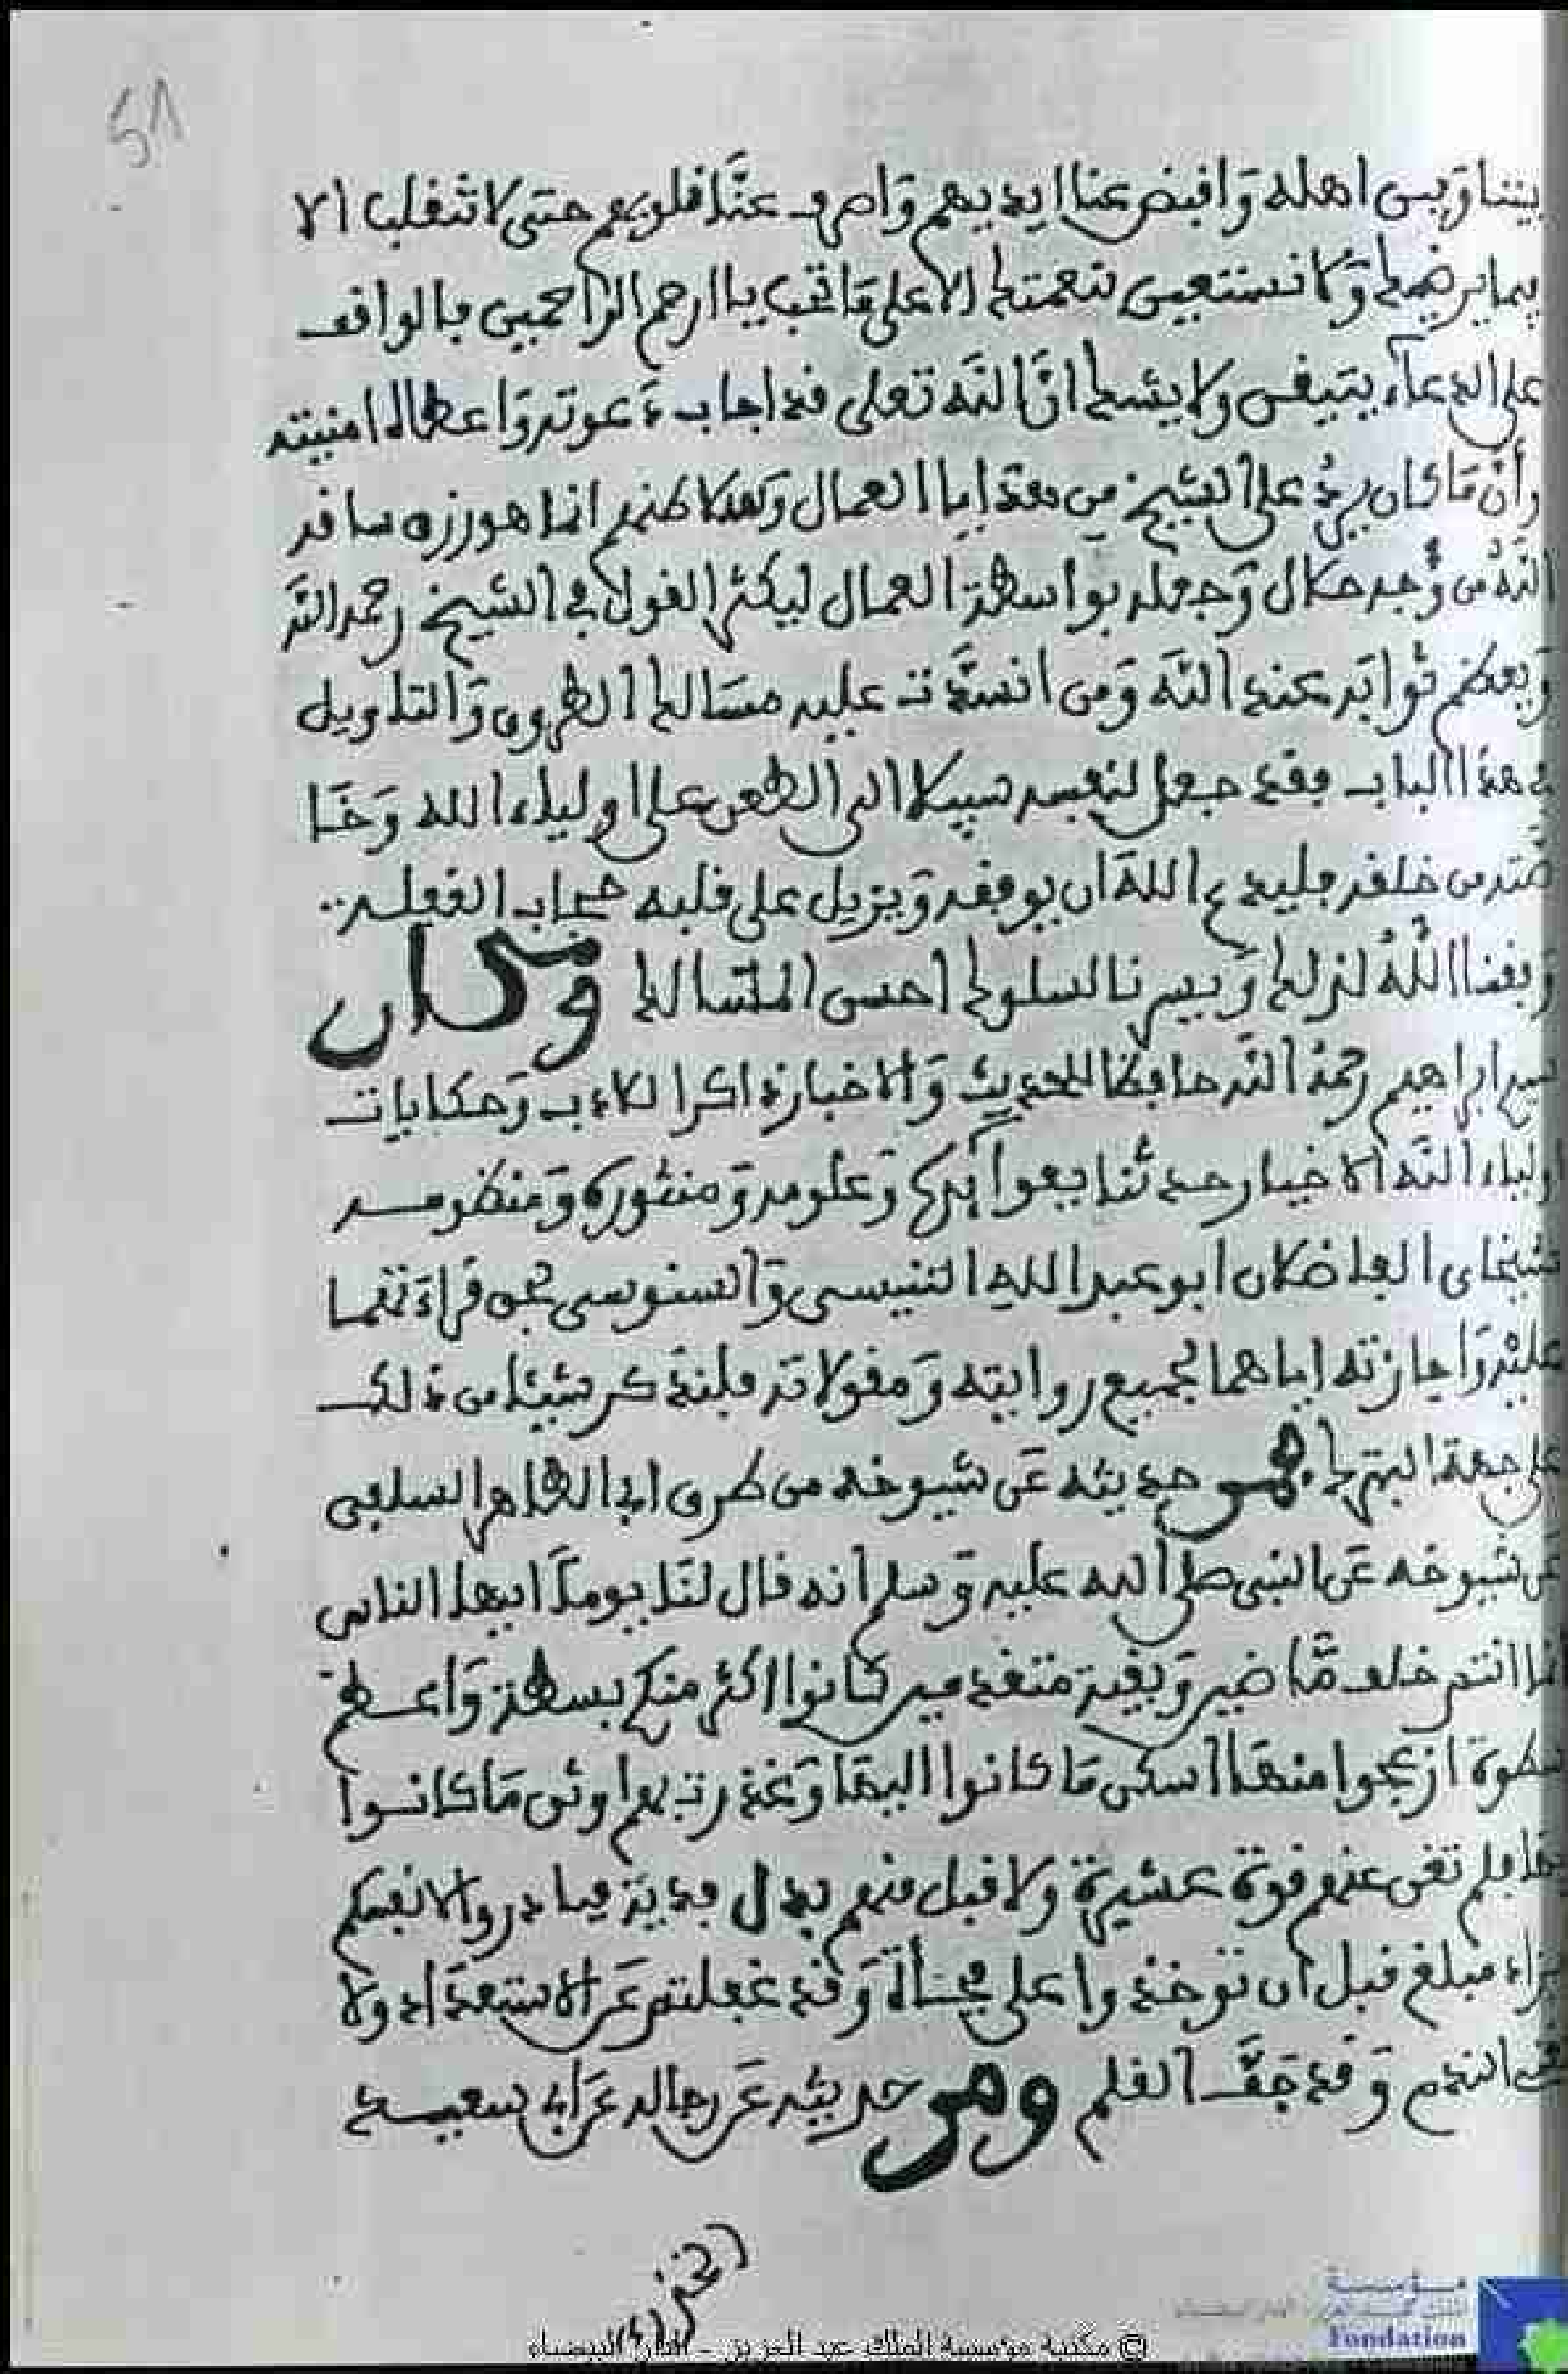 51
بيننا وبين اهله واقبض عنا ايديهم واصرف عنا قلوبهم حتى لا تنقلب الا
بما يرضيك ولا نستعين بنعمتك الا على ما تحب يا ارحم الراحمين فالواقف
على الدعاء يتيقن ولا يشك ان الله تعلى قد اجاب دعوته واعطاه امنيته
وأن ما كان يرد على الشيخ من هدايا العمال وكلا انما هو رزق ساقه
الله من وجه حلال وجعله بواسطة العمال ليكثر القول في الشيخ رحمه الله
ويعظم ثوابه عند الله ومن انسدت عليه مسالك الطرق والتاويل
في هذا الباب فقد جعل لنفسه سبيلا الى الطعن على اولياء الله وخا
صته من خلقه فليدع الله ان يوفقه ويزيل على قلبه حجاب الغفلة
وفقنا الله لذلك ويسرنا لسلوك احسن المسالك وكان
سيدي ابراهيم رحمه الله حافظا للحديث والاخبار ذاكرا للادب وحكايات
اولياء الله الاخيار حدثنا بفوائده وعلومه ومنثوره ومنظومه
شيخاي الفاضلان ابو عبد الله التنيسي والسنوسي عن قراءتهما
عليه واجازته اياهما لجميع روايته ومقولاته فلنذكر شيئا من ذلك
على جهة التبرك فمن حديثه عن شيوخه من طرق ابي الطاهر السلفي
عن شيوخه عن النبي صلى الله عليه وسلم انه قال لنا يوما ايها الناس
انما انتم خلف ماضين وبقية متقدمين كانوا اكثر منكم بسطة واعظم
سطوة ازعجوا منها اسكن ما كانوا اليها وغدرت بهم اوثق ما كانوا
بها فلم تغن عنهم قوة عشيرة ولا قبل منهم بدل فدية فبادروا لانفسكم
بزاد مبلغ قبل ان توخذوا على فجأة وقد غفلتم عن الاستعداد ولا
يغني الندم وقد جف القلم ومن حديثه عن رجاله عن ابي سعيد
الخدري
© مكتبة مؤسسة الملك عبد العزيز - الدار البيضاء
مؤسسة
Fondation